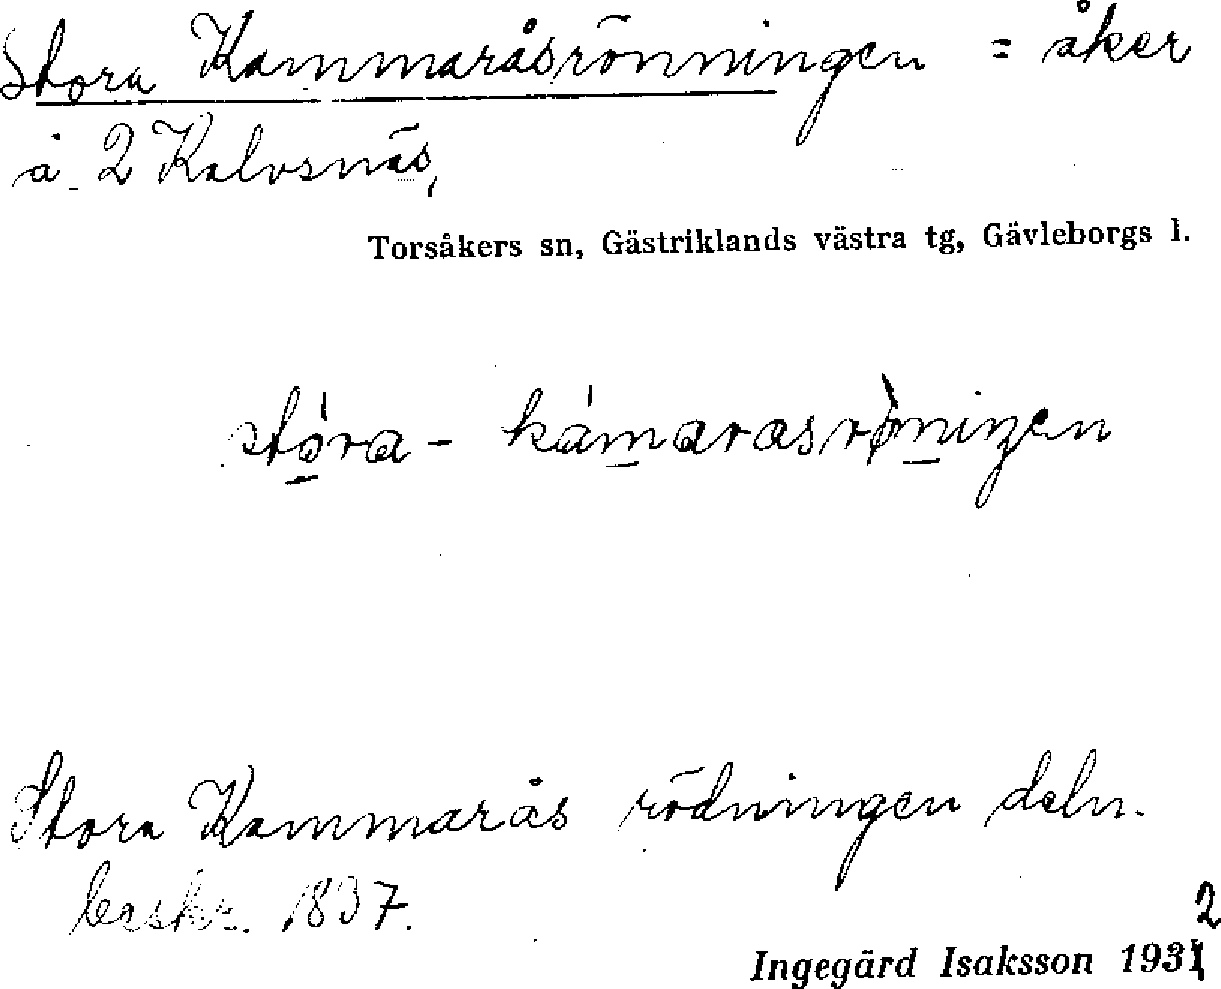 Stora Kammaråsrönningen = åker
å 2 Kalvsnäs,
Torsåkers sn, Gästriklands västra tg, Gävleborgs l.
stó̠ra - kám̠arasrò̠n̠iŋen
Stora Kammarås rödningen deln.
beskr. 1837.
2
Ingegärd Isaksson 1931